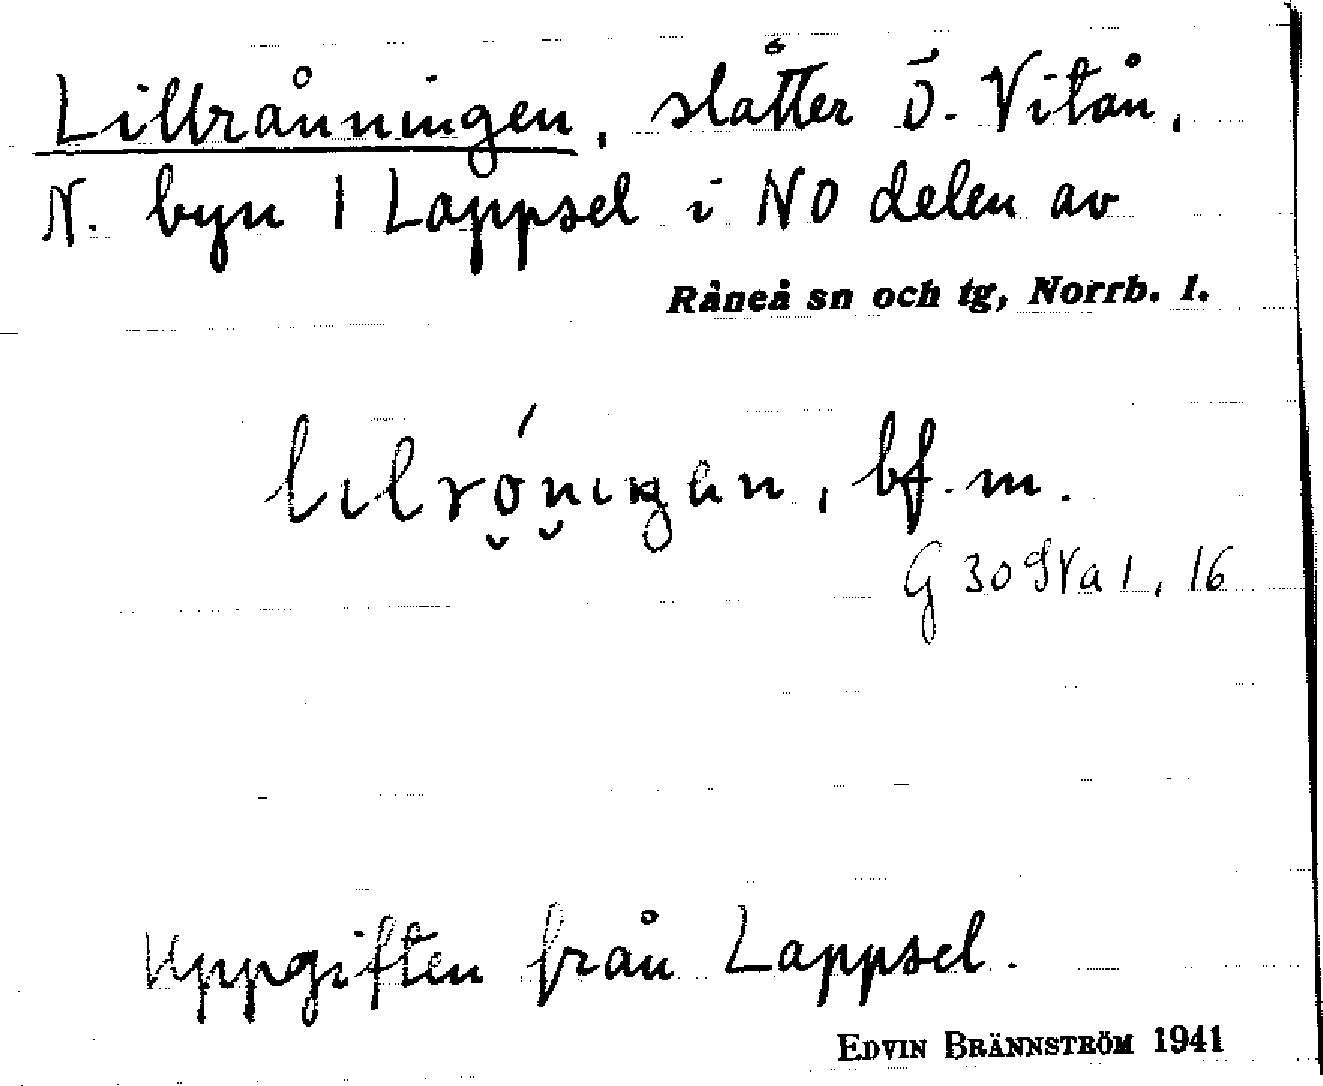 Lillrånningen, slåtter Ö. Vitån,
N. byn 1 Lappsel i NO delen av
Råneå sn och tg, Norrb. l.
bf. m.
G 30 SVa 1, 16
Uppgiften från Lappsel.
EDVIN BRÄNNSTRÖM 1941